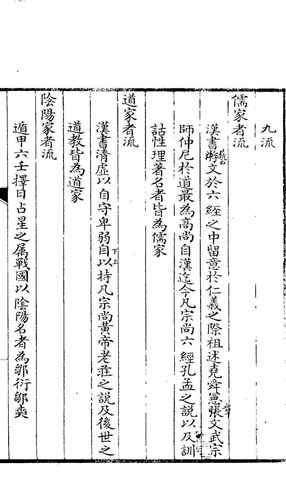 九流
儒家者流
漢書藝文於六經之中留意於仁義之際祖述堯舜憲章文武宗
師仲尼於道最為高尚自漢迄今凡宗尚六經孔孟之說以及訓
詁性理著名者皆為儒家
道家者流
漢書清虛以自守卑弱自以持凡宗尚黃帝老莊之說及後世之
道教皆為道家
陰陽家者流
遁甲六壬擇日占星之屬戰國以陰陽名者為鄒衍鄒奭